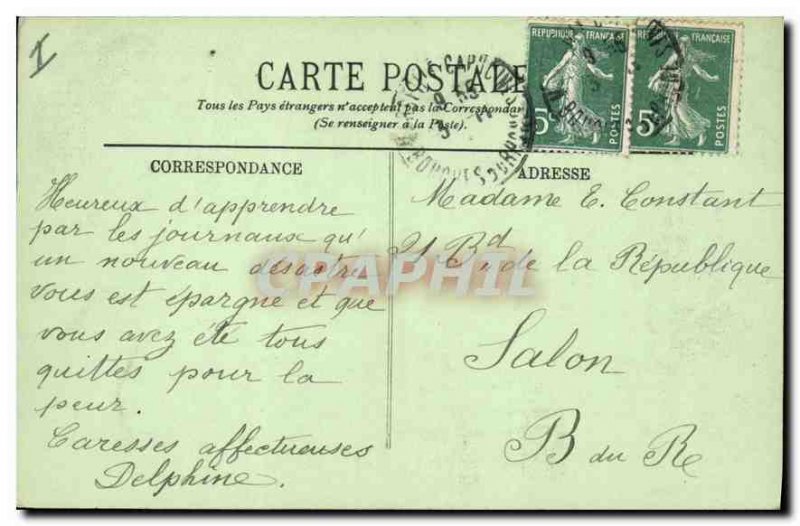 I
CARTE POSTALE
Tous les Pays étrangers n'acceptent pas la Correspondance
(Se renseigner à la Poste).
REPUBLIQUE FRANÇAISE
5c
POSTES
FRANÇAISE
5c
POSTES
CORRESPONDANCE
ADRESSE
Heureux d'apprendre
par les journaux qu'
un nouveau désastre
vous est épargné et que
vous avez été tous
quittes pour la
peur.
Caresses affectueuses
Delphine.
Madame E. Constant
Bd de la République
Salon
B du R
CPAPHIL